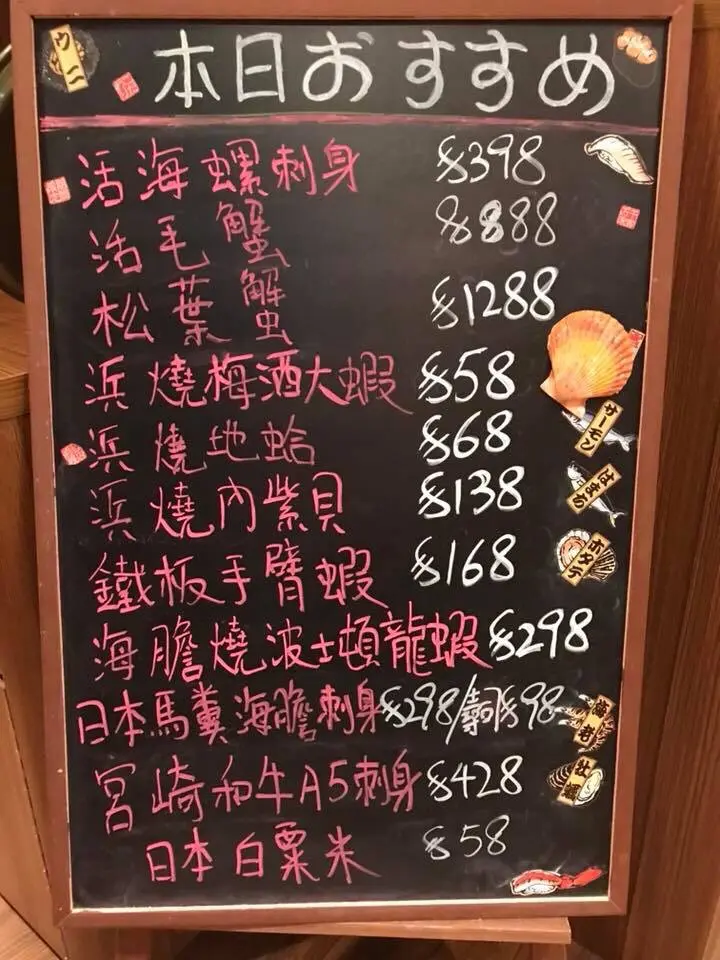 ウニ
本日おすすめ
活海螺刺身 $398
活毛蟹 $888
松葉蟹 $1288
浜燒梅酒大蝦 $58
サーモン
浜燒地蛤 $68
浜燒內紫貝 $138
はまち
鐵板手臂蝦 $168
ホタテ
海膽燒波士頓龍蝦 $298
日本馬糞海膽刺身 $298/壽司$98
宮崎和牛A5刺身 $428
牡蠣
日本白粟米 $58